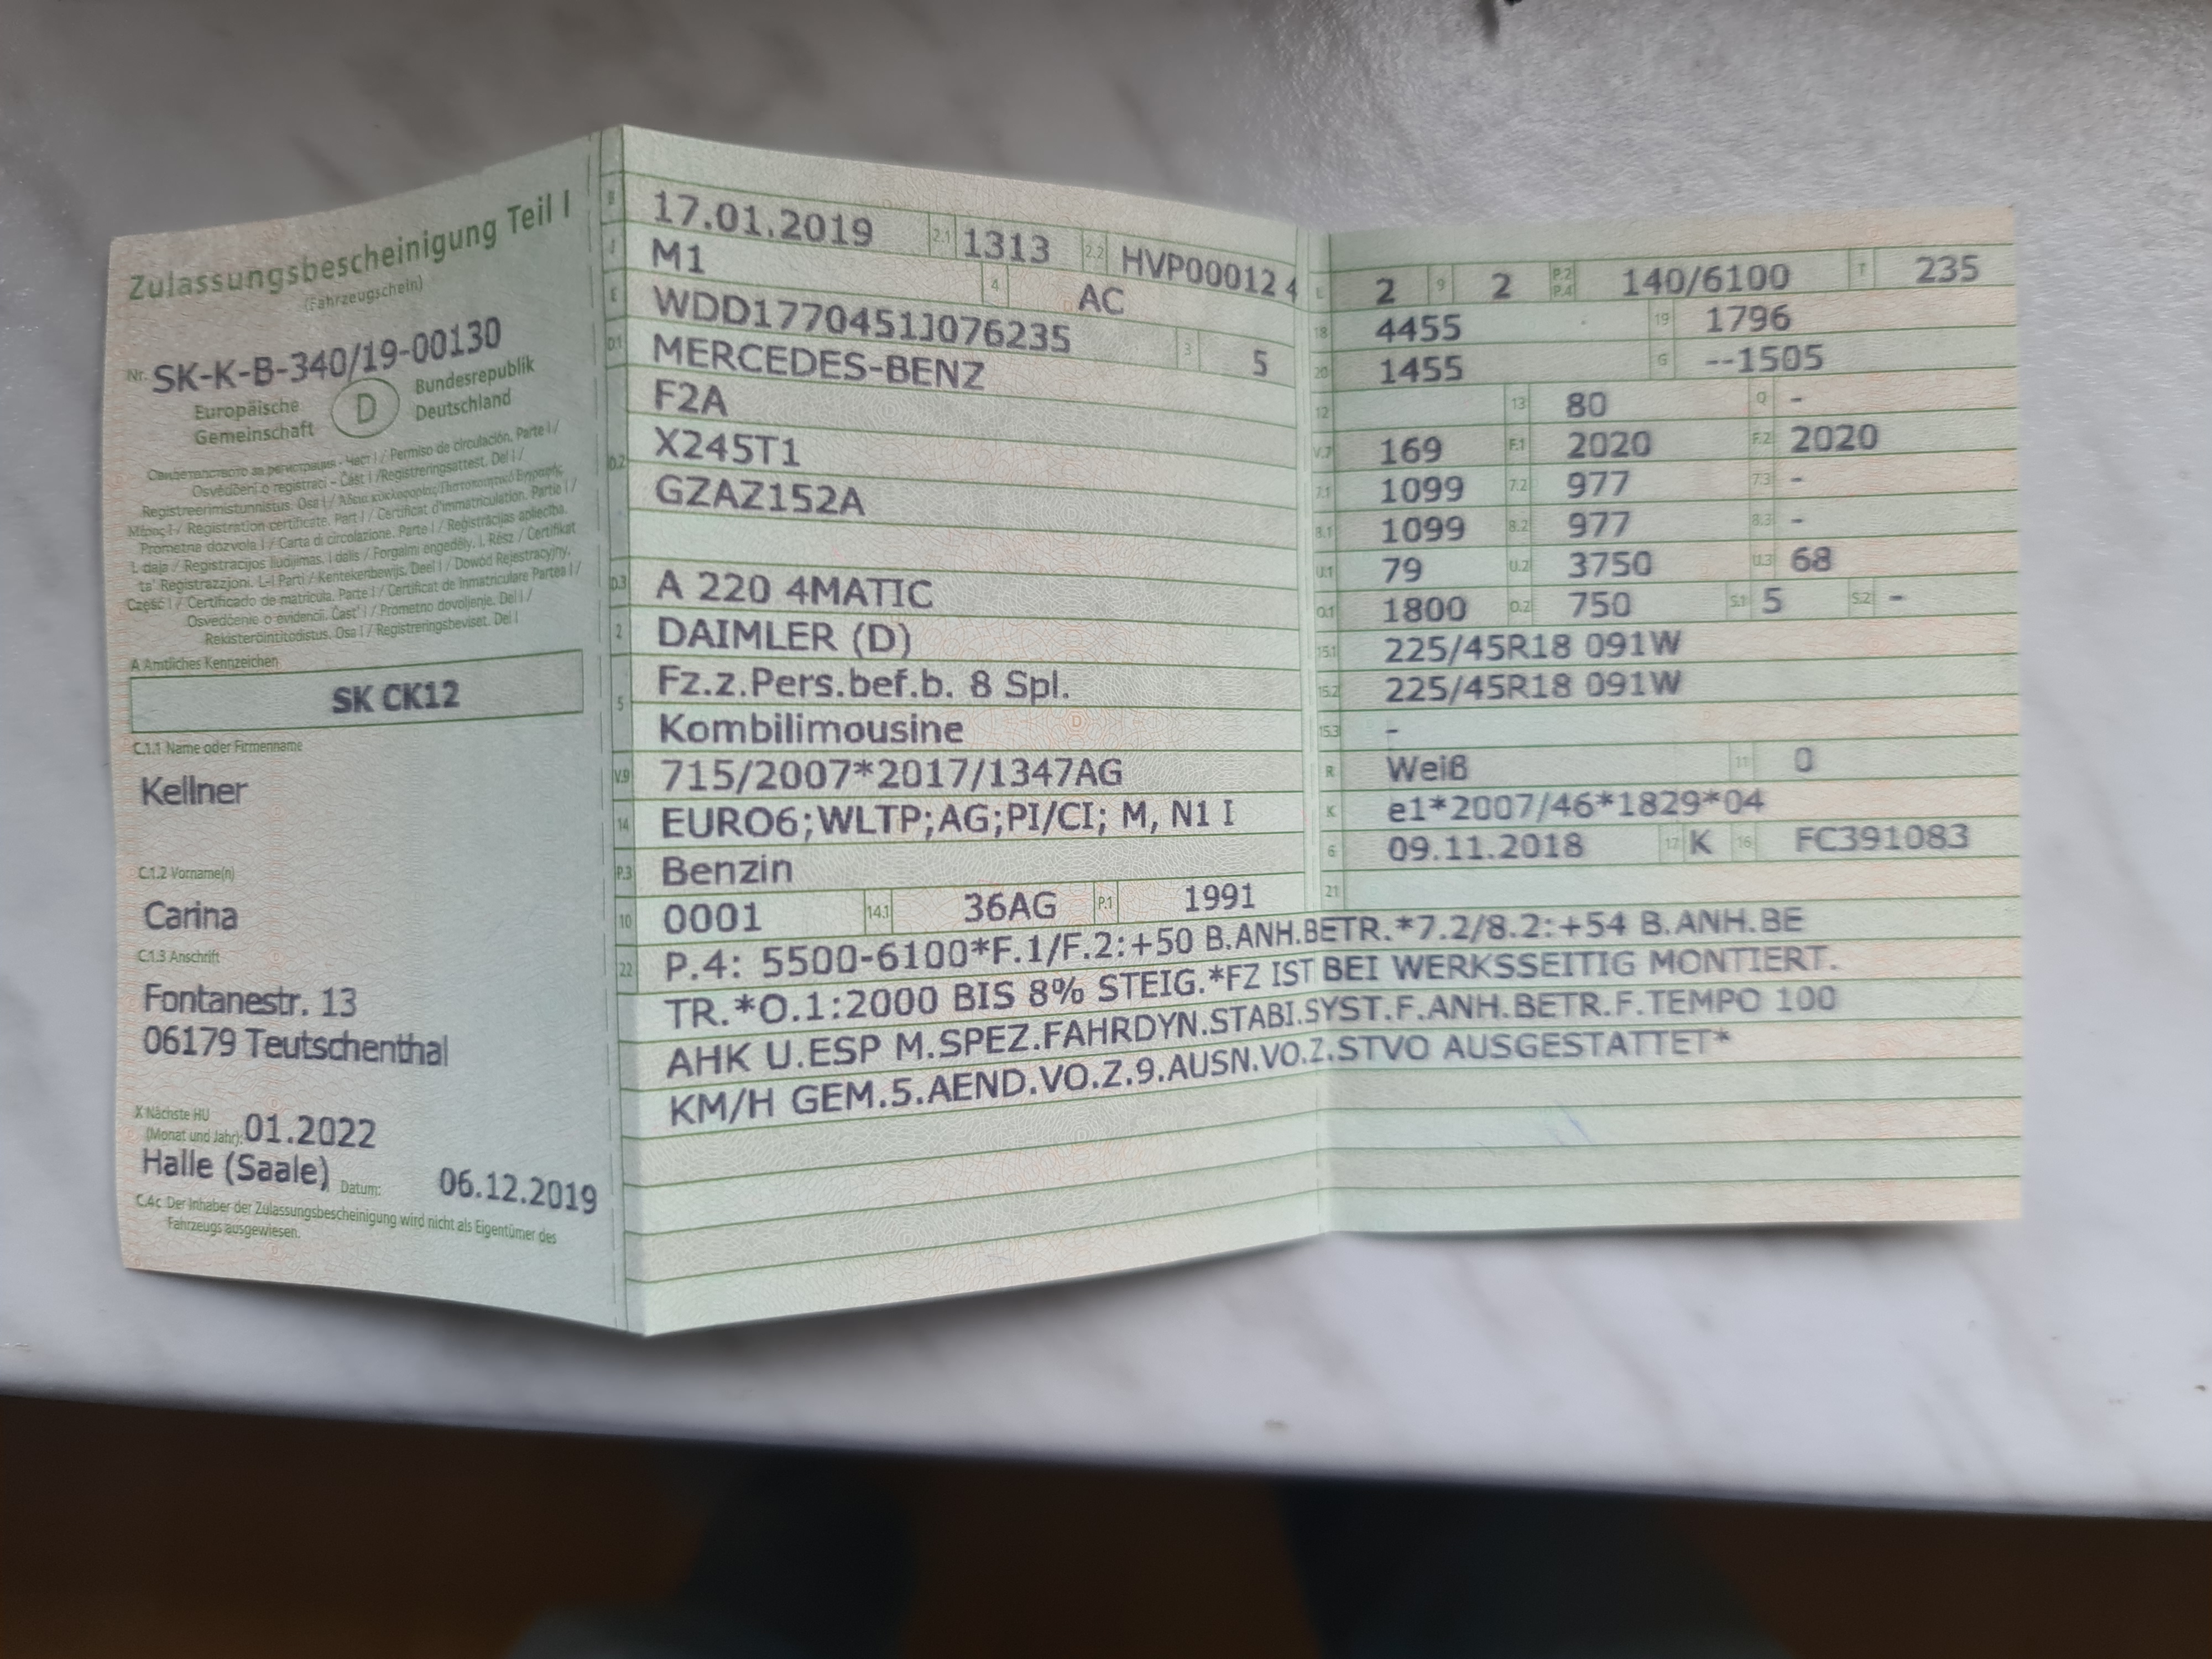 Zulassungsbescheinigung Teil I
(Fahrzeugschein)
Nr. SK-K-B-340/19-00130
Europäische Gemeinschaft
D
Bundesrepublik Deutschland
Свидетелство за регистрация - Част I / Permiso de circulación. Parte I /
Osvědčení o registraci - Část I / Registreringsattest. Del I /
Registreerimistunnistus. Osa I / Άδεια κυκλοφορίας/Πιστοποιητικό Εγγραφής
Μέρος I / Registration certificate. Part I / Certificat d'immatriculation. Partie I /
Prometna dozvola I / Carta di circolazione. Parte I / Reģistrācijas apliecība.
I. daļa / Registracijos liudijimas. I dalis / Forgalmi engedély. I. Rész / Certifikat
ta' Reġistrazzjoni. L-I Parti / Kentekenbewijs. Deel I / Dowód Rejestracyjny.
Część I / Certificado de matrícula. Parte I / Certificat de înmatriculare Partea I /
Osvedčenie o evidencii. Časť I / Prometno dovoljenje. Del I /
Rekisteröintitodistus. Osa I / Registreringsbeviset. Del I
A Amtliches Kennzeichen
SK CK12
C.1.1 Name oder Firmenname
Kellner
C.1.2 Vorname(n)
Carina
C.1.3 Anschrift
Fontanestr. 13
06179 Teutschenthal
X Nächste HU
(Monat und Jahr): 01.2022
Halle (Saale) Datum: 06.12.2019
C.4c Der Inhaber der Zulassungsbescheinigung wird nicht als Eigentümer des
Fahrzeugs ausgewiesen.
B 17.01.2019 2.1 1313 2.2 HVP00012 4
J M1 4 AC
E WDD1770451J076235 3 5
D.1 MERCEDES-BENZ
F2A
D.2 X245T1
GZAZ152A
D.3 A 220 4MATIC
2 DAIMLER (D)
5 Fz.z.Pers.bef.b. 8 Spl.
Kombilimousine
V.9 715/2007*2017/1347AG
14 EURO6;WLTP;AG;PI/CI; M, N1 I
P.3 Benzin
10 0001 14.1 36AG P.1 1991
L 2 9 2 P.2 P.4 140/6100 T 235
18 4455 19 1796
20 1455 G --1505
12 13 80 Q -
V.7 169 F.1 2020 F.2 2020
7.1 1099 7.2 977 7.3 -
8.1 1099 8.2 977 8.3 -
U.1 79 U.2 3750 U.3 68
O.1 1800 O.2 750 S.1 5 S.2 -
15.1 225/45R18 091W
15.2 225/45R18 091W
15.3 -
R Weiß 11 0
K e1*2007/46*1829*04
6 09.11.2018 17 K 16 FC391083
21
22 P.4: 5500-6100*F.1/F.2:+50 B.ANH.BETR.*7.2/8.2:+54 B.ANH.BE
TR.*O.1:2000 BIS 8% STEIG.*FZ IST BEI WERKSSEITIG MONTIERT.
AHK U.ESP M.SPEZ.FAHRDYN.STABI.SYST.F.ANH.BETR.F.TEMPO 100
KM/H GEM.5.AEND.VO.Z.9.AUSN.VO.Z.STVO AUSGESTATTET*